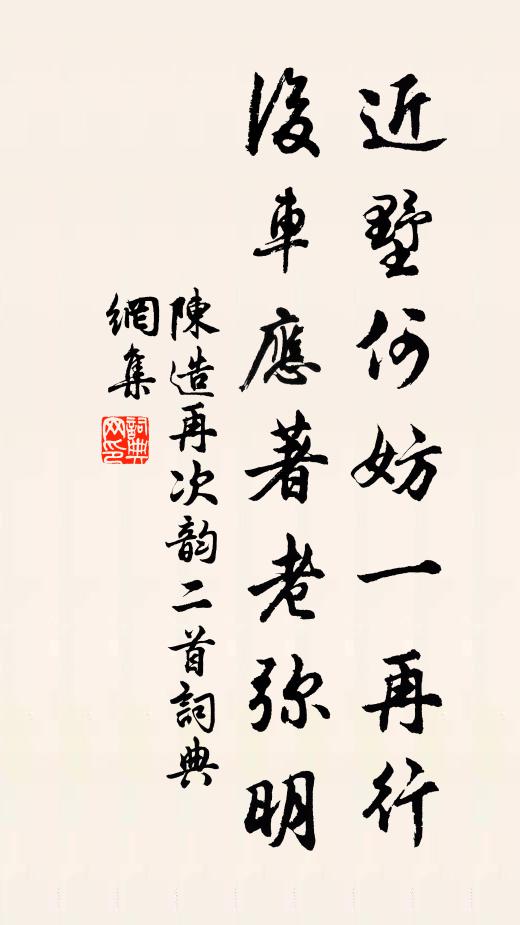 近墅何妨一再行
後車應著老弥明
陳造再次韵二首詞典
網集
詞典網印